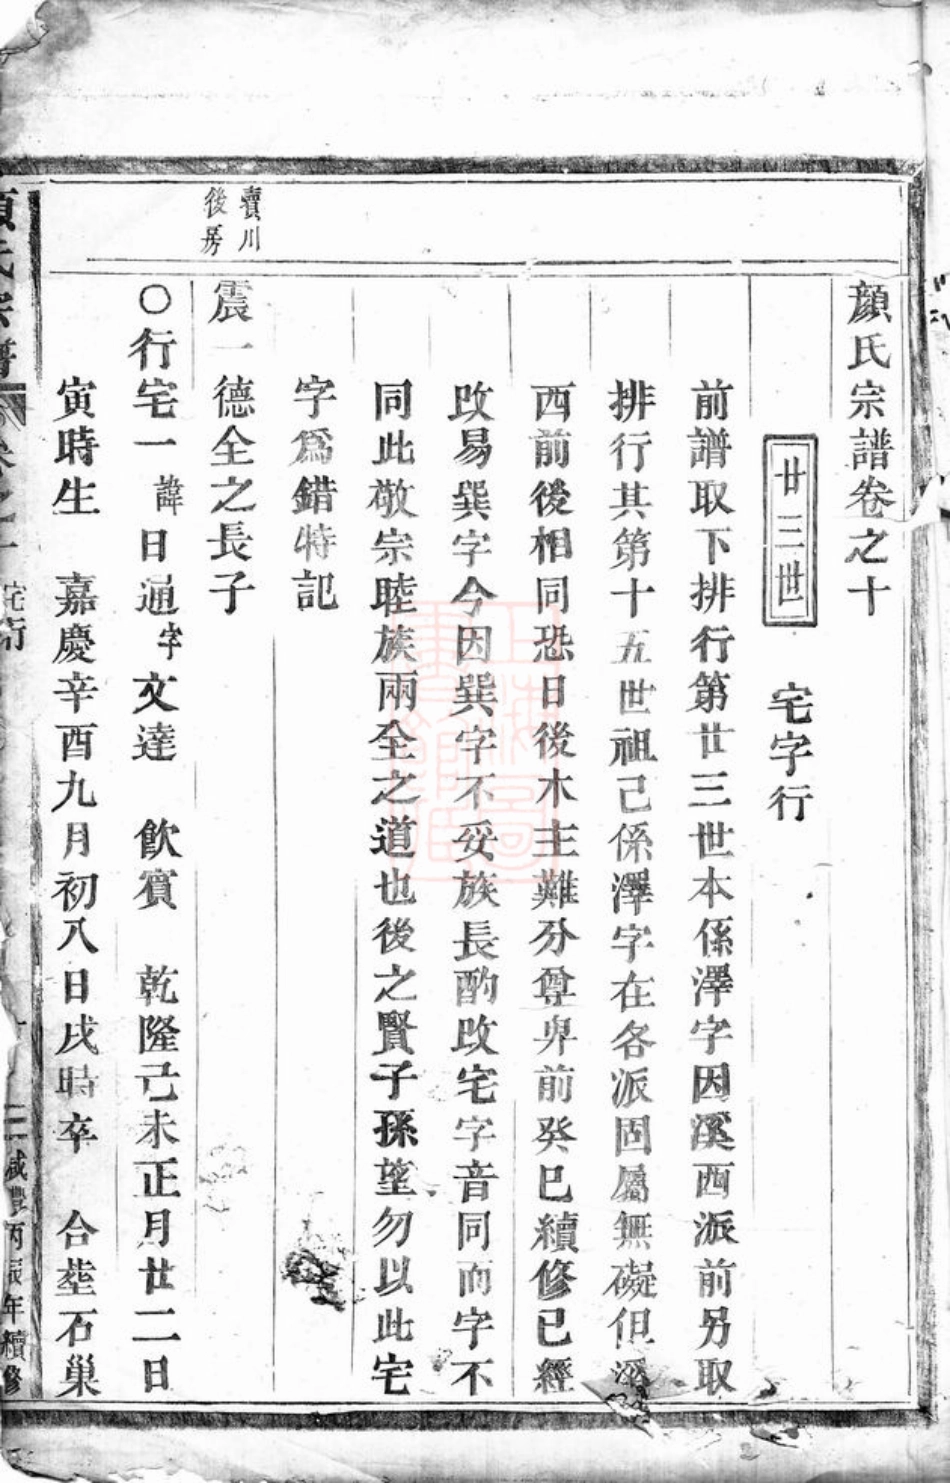 顔氏宗譜卷之十
廿三世
宅字行
前譜取下排行第廿三世本係澤字因溪西派前另取
排行其第十五世祖己係澤字在各派固屬無礙但溪
西前後相同恐日後木主難分尊卑前癸巳續修已經
改易巽字今因巽字不妥族長酌改宅字音同而字不
同此敬宗睦族兩全之道也後之賢子孫望勿以此宅
字爲錯特記
賣川
後房
震一德全之長子
○行宅一諱日通字文達　飲賓　乾隆己未正月廿二日
寅時生　嘉慶辛酉九月初八日戌時卒　合塟石巢
氏宗譜
卷之十
宅行
咸豐丙辰年續修